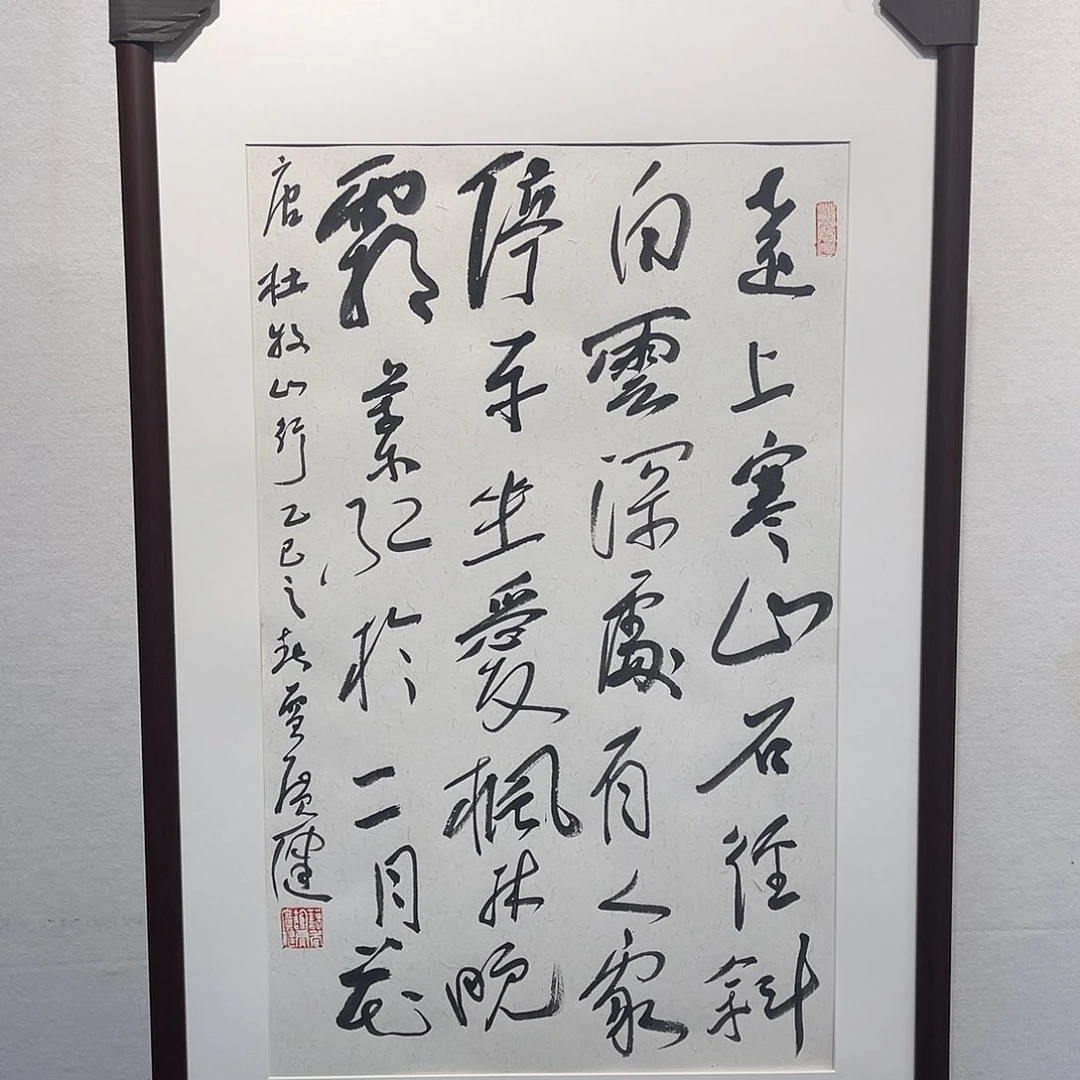 遠上寒山石徑斜
白雲深處有人家
停車坐愛楓林晚
霜葉紅於二月花
唐杜牧山行乙巳之